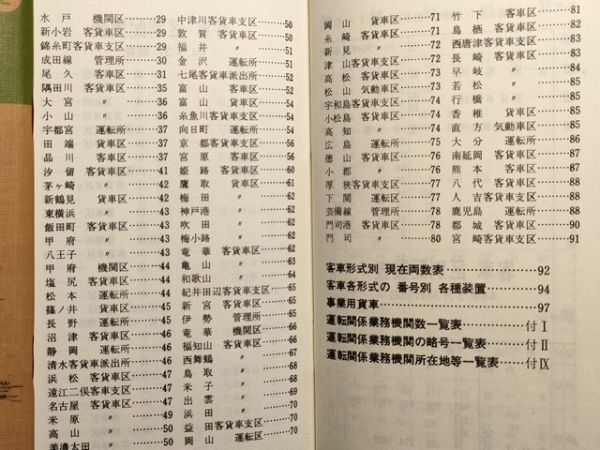 水戸 機関区………29
新小岩 客貨車区………29
錦糸町客貨車支区………29
成田線 管理所………30
尾久 客車区………31
隅田川 客貨車区………35
大宮 〃………36
小山 〃………36
宇都宮 運転所………37
田端 貨車区………37
品川 客車区………37
汐留 客貨車区………41
茅ヶ崎 〃………42
新鶴見 貨車区………42
東横浜 〃………43
飯田町 客貨車区………43
甲府 〃………43
八王子 〃………44
甲府 機関区………44
塩尻 客貨車区………44
松本 運転所………44
篠ノ井 貨車区………45
長野 運転所………45
沼津 客貨車区………46
静岡 運転所………46
清水客貨車派出所………46
浜松 客貨車区………47
遠江二俣客車支区………47
名古屋 客貨車区………47
米原 〃………49
高山 〃………50
美濃太田 〃………50
中津川客貨車支区………50
敦賀 客貨車区………50
福井 〃………51
金沢 運転所………51
七尾客貨車派出所………52
富山 客車区………52
富山 貨車区………54
糸魚川客貨車支区………54
向日町 運転所………54
京都 客貨車支区………56
宮原 客車区………56
姫路 客貨車区………60
鷹取 貨車区………61
梅田 〃………61
神戸港 〃………61
吹田 〃………61
梅小路 〃………62
竜華 客貨車区………62
亀山 〃………63
和歌山 〃………64
紀伊田辺客貨車支区………65
新宮 客貨車区………65
伊勢 管理所………65
竜華 機関区………66
福知山 客貨車区………66
西舞鶴 〃………67
鳥取 〃………68
米子 〃………68
出雲 〃………69
浜田 〃………70
益田 客貨車支区………70
岡山 運転区………70
岡山 貨車区………71
糸崎 客貨車区………71
新見 〃………72
津山 客貨車支区………72
高松 客貨車区………73
松山 気動車区………73
宇和島客貨車支区………74
小松島 客貨車区………74
高知 〃………74
広島 運転所………75
徳山 客貨車区………76
小郡 〃………76
厚狭 客貨車支区………77
下関 運転区………77
芸備線 管理所………78
門司港 客貨車区………78
門司 〃………80
竹下 客車区………81
鳥栖 客貨車区………82
西唐津客貨車支区………82
長崎 客貨車区………82
早岐 〃………84
若松 〃………84
行橋 〃………84
香椎 貨車区………85
直方 気動車区………85
大分 運転所………85
南延岡 客貨車区………87
熊本 客車区………87
八代 客貨車区………88
人吉 客貨車支区………88
鹿児島 運転所………88
都城 客貨車区………90
宮崎 客貨車支区………91
客車形式別 現在両数表………92
客車各形式の 番号別 各種装置………94
事業用貨車………97
運転関係業務機関数一覧表………付Ⅰ
運転関係業務機関の略号一覧表………付Ⅱ
運転関係業務機関所在地等一覧表………付Ⅸ